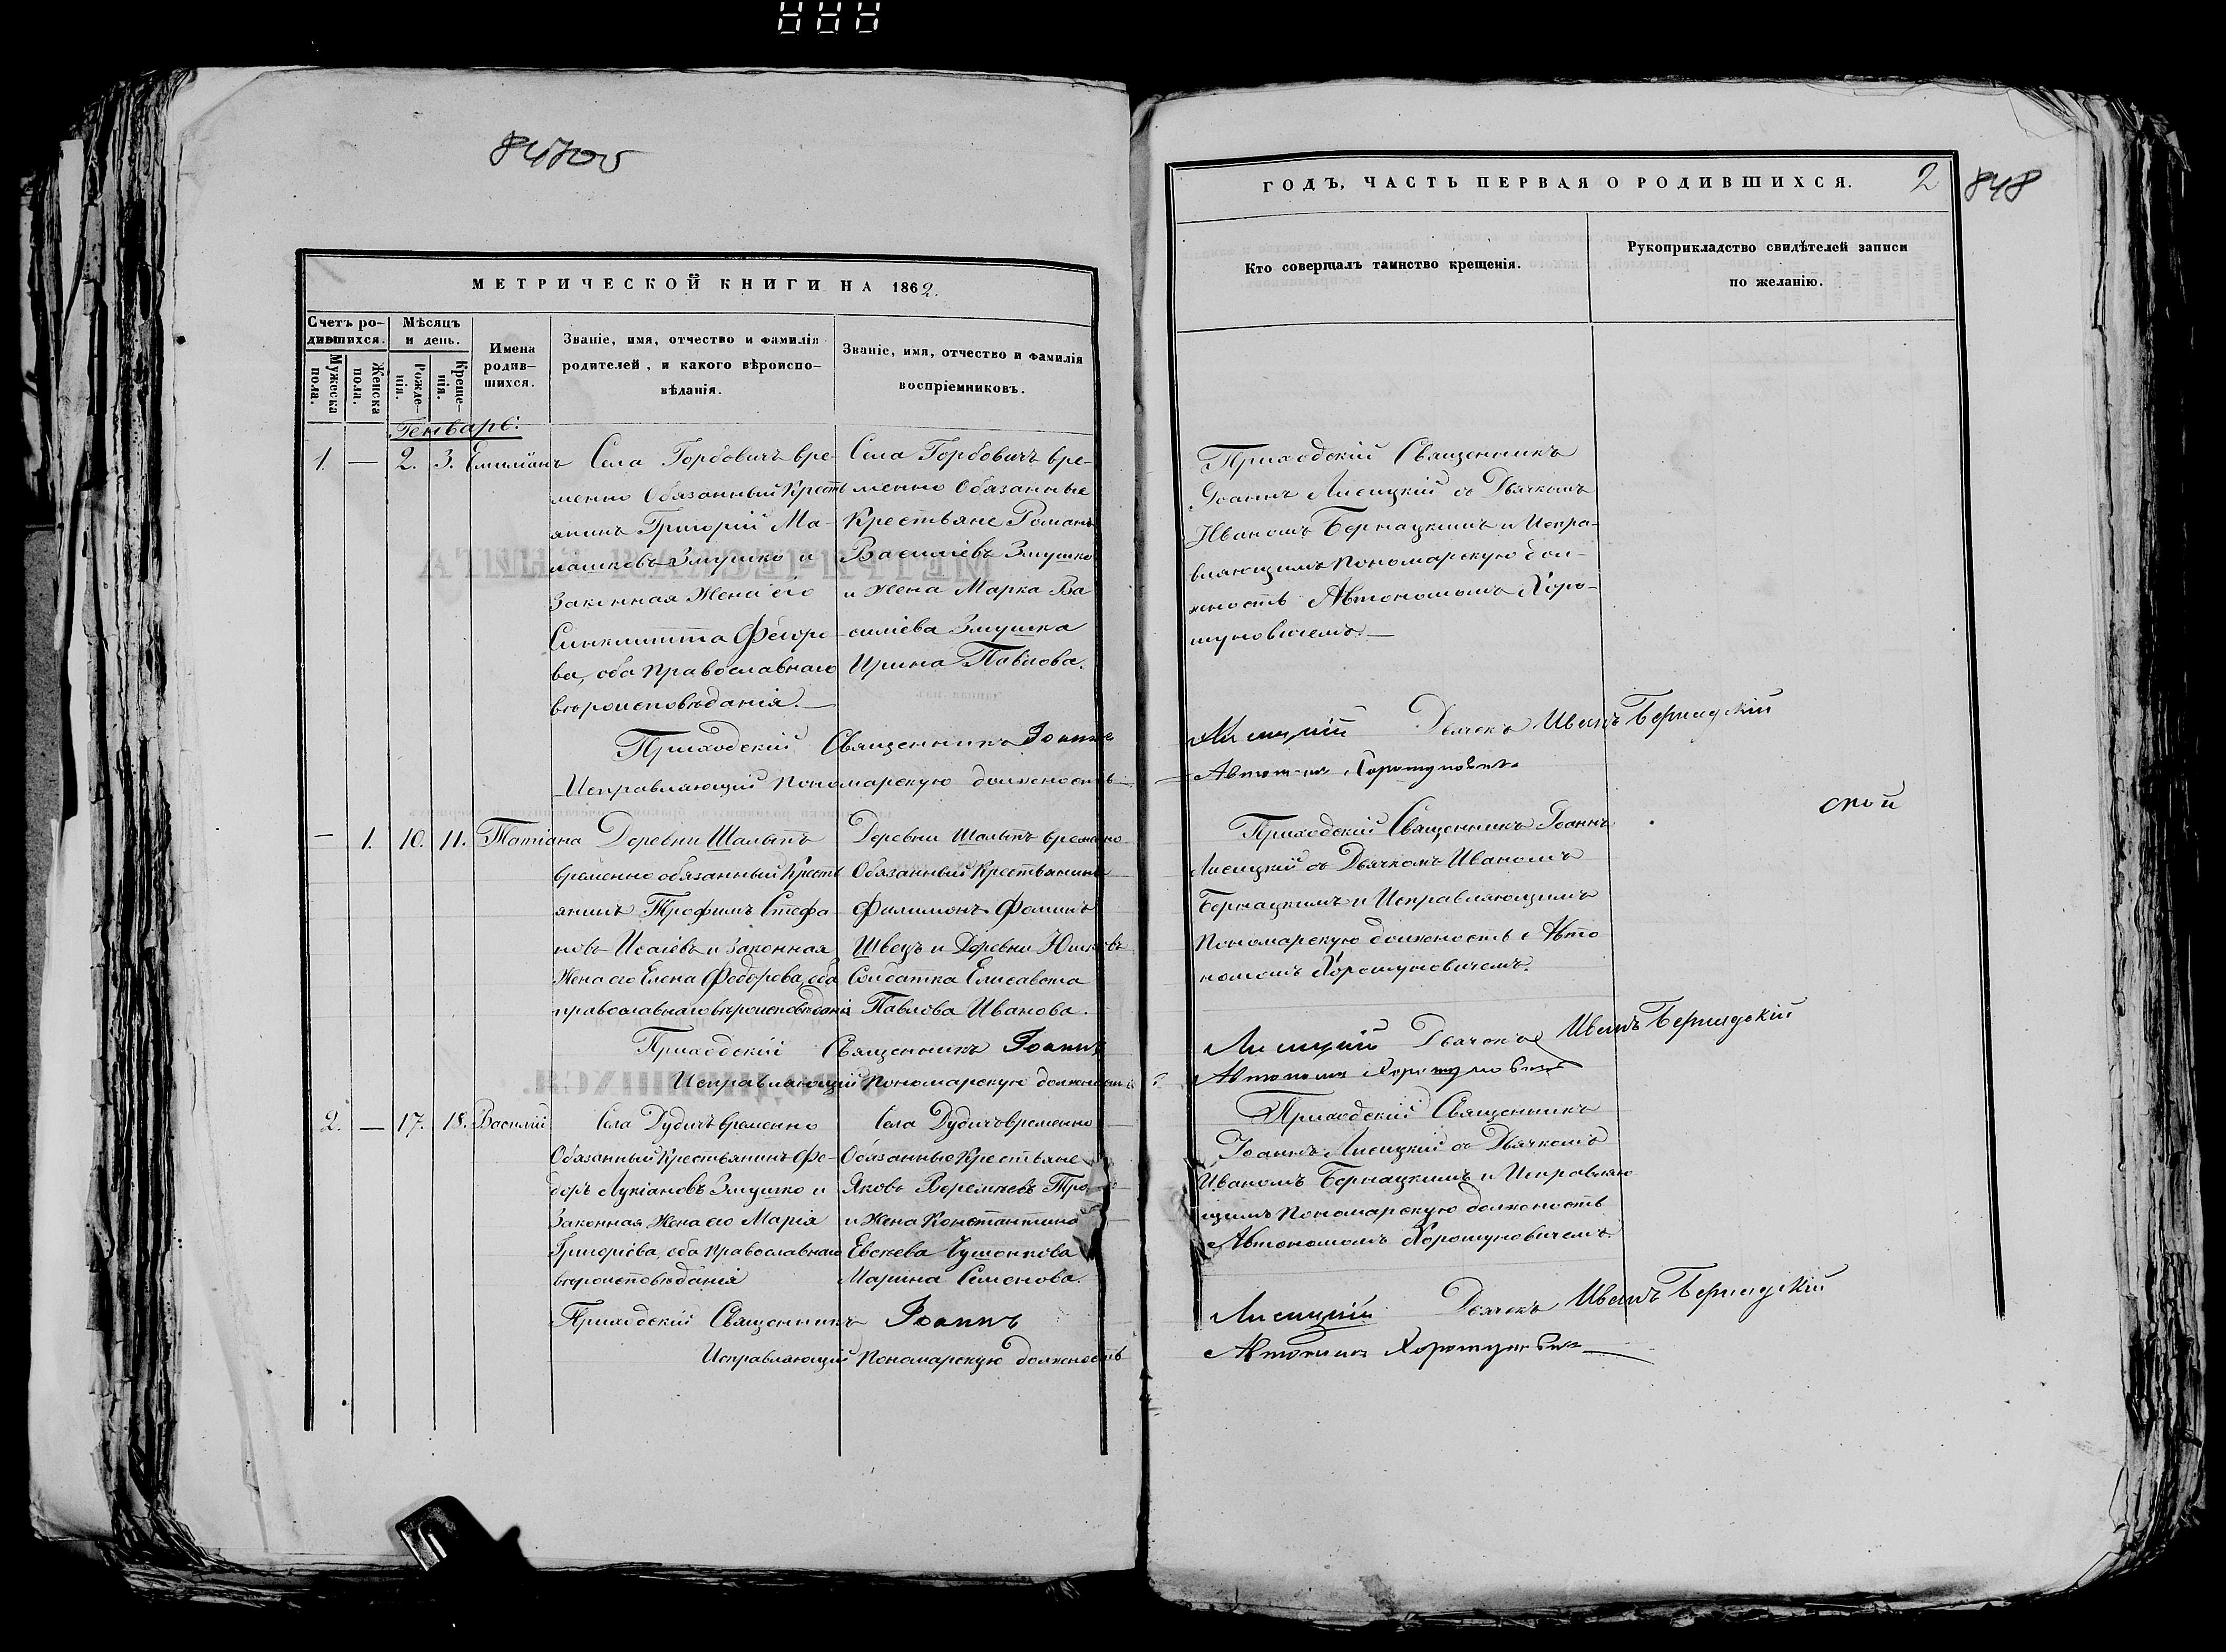 МЕТРИЧЕСКОЙ КНИГИ НА 1862.
Счетъ ро-
дившихся.
Мужеска
пола.
Женска
пола.
Мѣсяцъ
и день.
Рожде-
нія.
Креще-
нія.
Имена
родив-
шихся.
Званіе, имя, отчество и фамилія
родителей, и какого вѣроиспо-
вѣданія.
Званіе, имя, отчество и фамилія
воспріемниковъ.
Генварь:
1. — 2. 3. Емиліанъ
Села Горбовичъ вре-
менно Обязанный Кресть
янинъ Григорій Ма-
Змушко и
Законная Жена его
Синклитта Фёдоро-
ва, оба Православнаго
вѣроисповѣданія. —
Села Горбовичъ вре-
менно Обязанные
Крестьяне Романъ
Василіевъ Змушко
и Жена Марка Ва
силіева Змушка
Ирина Павлова.
Приходскій Священникъ Іоаннъ
Исправляющій Пономарскую должность
— 1. 10. 11. Татіана
Деревни Шалыпъ
временно обязанный Кресть
янинъ Трофимъ Стефа-
новъ Исаіевъ и Законная
Жена его Елена Фёдорова, оба
православнаго вѣроисповѣданія
Деревни Шалыпъ временно
Обязанный Крестьянинъ
Филимонъ Фоминъ
Швецъ и Деревни
Солдатка Елисавета
Павлова Иванова.
Приходскій Священникъ Іоаннъ
Исправляющій Пономарскую должность
2. — 17. 18. Василій
Села Дудичъ временно
Обязанный Крестьянинъ Фе-
доръ Лукіановъ Змушко и
Законная Жена его Марія
Григоріева, оба Православнаго
вѣроисповѣданія
Села Дудичъ временно
Обязанные Крестьяне
Яковъ
и Жена Константина
Марина Семенова.
Приходскій Священникъ Іоаннъ
Исправляющій Пономарскую должность
ГОДЪ, ЧАСТЬ ПЕРВАЯ О РОДИВШИХСЯ.
2
848
Кто совершалъ таинство крещенія.
Рукоприкладство свидѣтелей записи
по желанію.
Приходскій Священникъ
Іоаннъ Лисицкій съ Дьячкомъ
Иваномъ Бернацкимъ и Испра-
вляющимъ Пономарскую дол-
жность Автономомъ Хоро-
шуновичемъ. —
Лисицкій Дьячекъ Иванъ Бернадскій
Автономъ Хорошуновичъ
Приходскій Священникъ Іоаннъ
Лисицкій съ Дьячкомъ Иваномъ
Бернацкимъ и Исправляющимъ
Пономарскую должность Авто
номомъ Хорошуновичемъ.
Лисицкій Дьячекъ Иванъ Бернадскій
Автономъ Хорошуновичъ
Приходскій Священникъ
Іоаннъ Лисицкій съ Дьячкомъ
Иваномъ Бернацкимъ и Исправляю
щимъ Пономарскую должность
Автономомъ Хорошуновичемъ
Лисицкій Дьячекъ Иванъ Бернадскій
Автономъ Хорошуновичъ